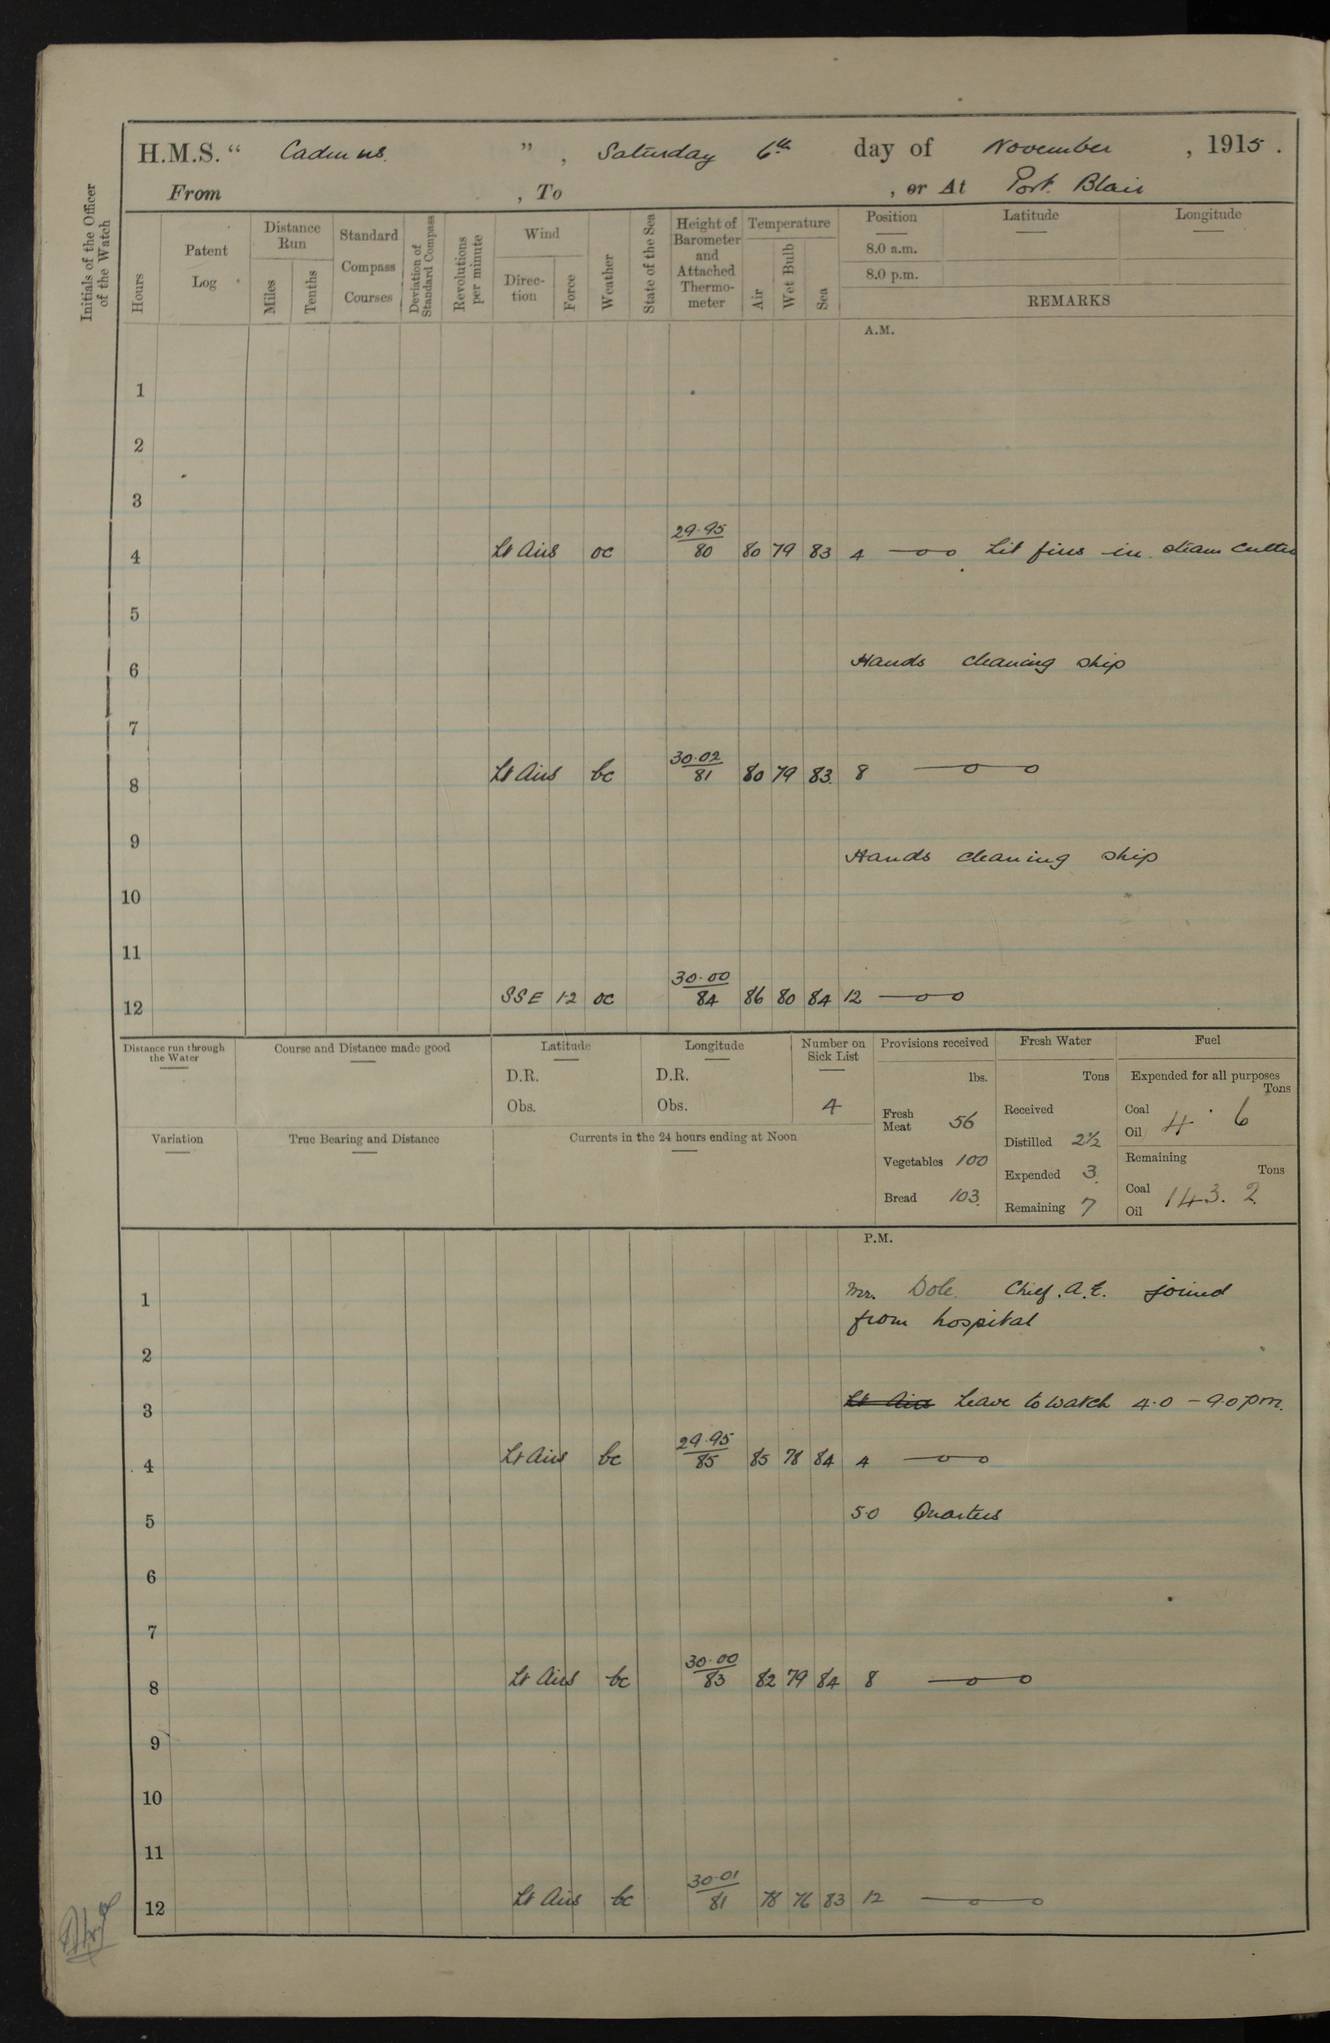 H.M.S. " Cadmus. " , Saturday 6th day of November , 1915 .
From , To , or At Port Blair
Initials of the Officer of the Watch
Hours
Patent Log
Distance Run
Miles
Tenths
Standard Compass Courses
Deviation of Standard Compass
Revolutions per minute
Wind
Direc-tion
Force
Weather
State of the Sea
Height of Barometer and Attached Thermo-meter
Temperature
Air
Wet Bulb
Sea
Position Latitude Longitude
8.0 a.m.
8.0 p.m.
REMARKS
A.M.
1
2
3
4 Lt Airs oc 29.95/80 80 79 83 4 —o o Lit fires in steam cutter
5
6 Hands cleaning ship
7
8 Lt Airs bc 30.02/81 80 79 83 8 —o o
9
Hands cleaning ship
10
11
12 SSE 1-2 oc 30.00/84 86 80 84 12 —o o
Distance run through the Water
Course and Distance made good
Latitude
D.R.
Obs.
Longitude
D.R.
Obs.
Number on Sick List
4
Provisions received
lbs.
Fresh Meat 56
Vegetables 100
Bread 103
Fresh Water
Tons
Received
Distilled 2½
Expended 3
Remaining 7
Fuel
Expended for all purposes
Tons
Coal
Oil 4 . 6
Remaining
Tons
Coal
Oil 143. 2
Variation
True Bearing and Distance
Currents in the 24 hours ending at Noon
P.M.
1 Mr. Dole. Chief. A.E. joined
from hospital
2
3 Lt Airs Leave to watch 4.0 - 9.0 pm.
4 Lt Airs bc 29.95/85 85 78 84 4 —o o
5 5.0 Quarters
6
7
8 Lt Airs bc 30.00/83 82 79 84 8 —o o
9
10
11
12 Lt Airs bc 30.01/81 78 76 83 12 —o o